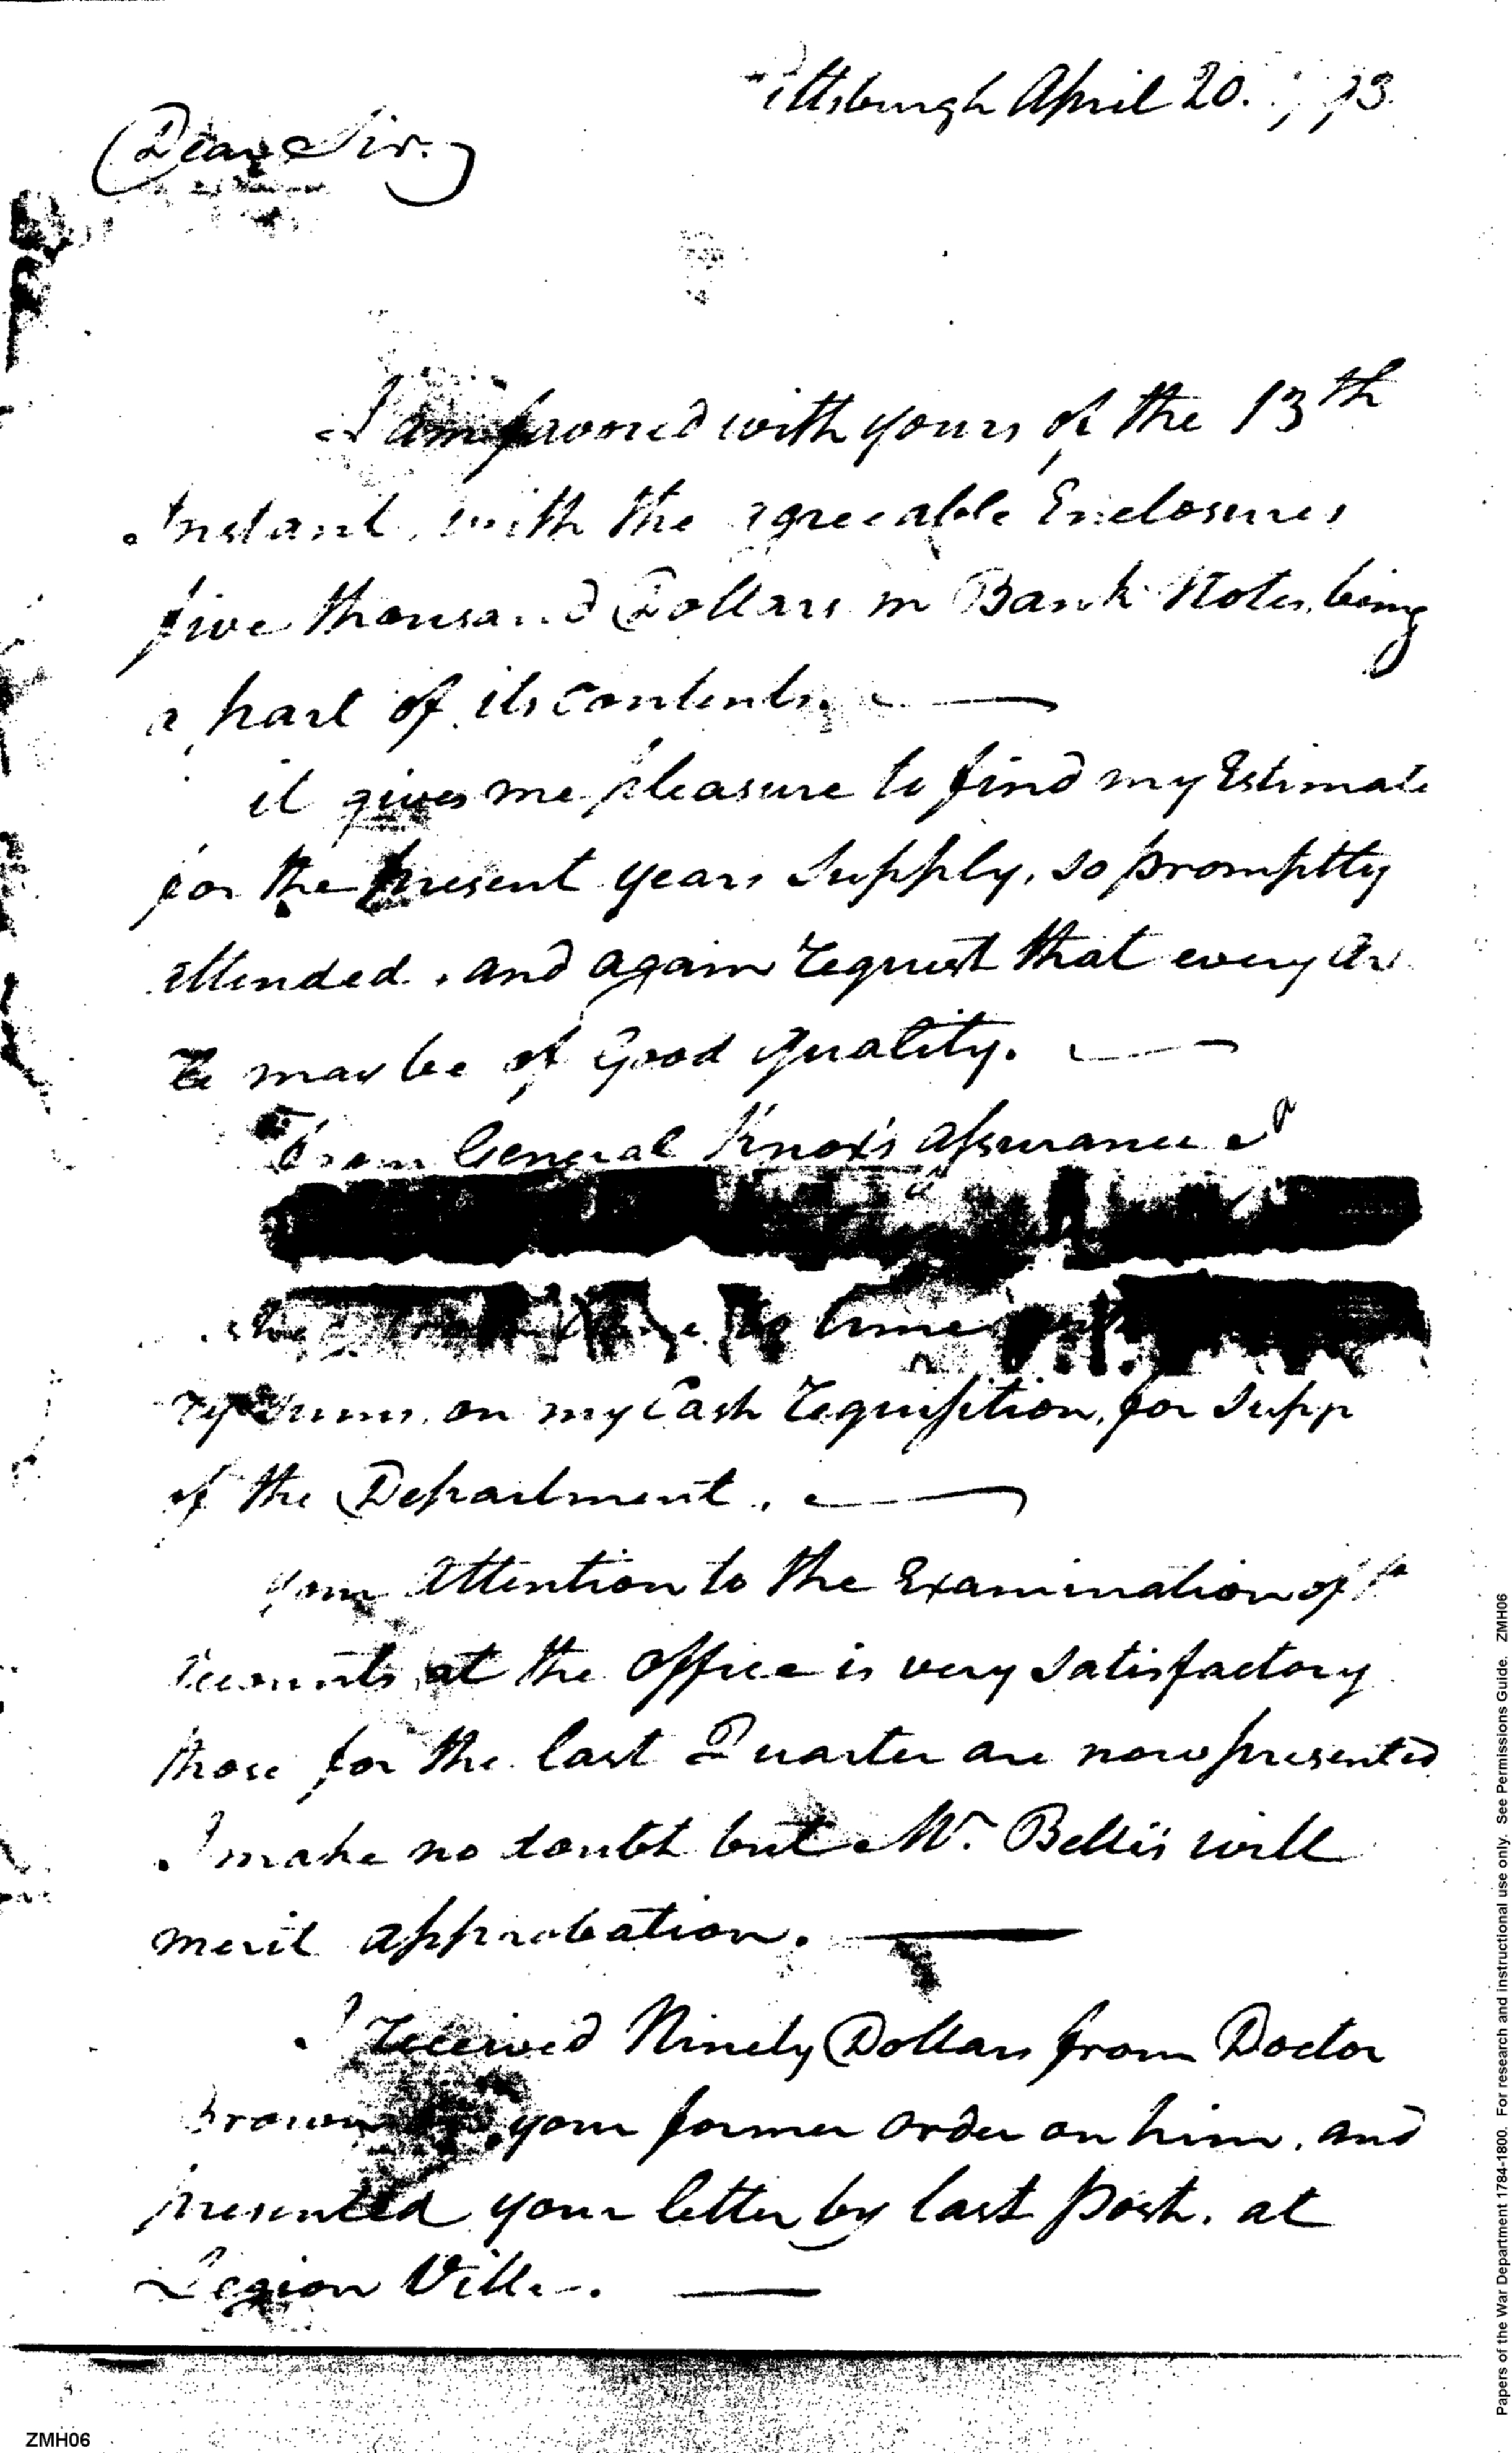 Pittsburgh April 20. 1793.
Dear Sir.
I am favored with yours of the 13th
Instant, with the agreeable Enclosures
five thousand Dollars in Bank Notes, being
a part of its contents.
it gives me pleasure to find my Estimate
for the present years Supply, so promptly
attended. and again request that every
may be of Good quality.
From General Knox's assurance
time
Sums, on my Cash Requisition, for Supp
of the Department.
your attention to the Examination of
accounts at the office is very satisfactory
those for the last Quarter are now presented
I make no doubt but Mr. Belli's will
merit approbation.
I received Ninety Dollars from Doctor
brown your former order on him, and
presented your letter by last post, at
Legion Ville.
ZMH06
Papers of the War Department 1784-1800. For research and instructional use only. See Permissions Guide. ZMH06